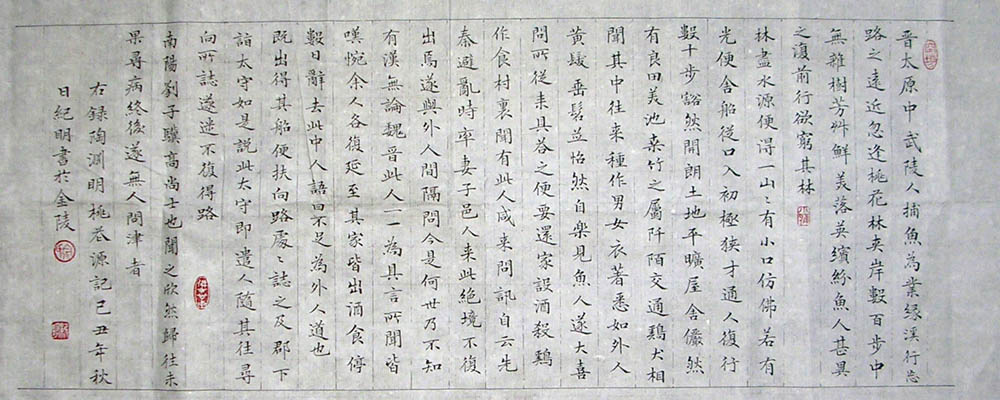 晋太原中武陵人捕魚為業緣溪行忘
路之遠近忽逢桃花林夾岸數百步中
無雜樹芳艸鮮美落英繽紛魚人甚異
之復前行欲窮其林
林盡水源便得一山〻有小口仿佛若有
光便舍船從口入初極狹才通人復行
數十步豁然開朗土地平曠屋舍儼然
有良田美池桑竹之屬阡陌交通鷄犬相
聞其中往来種作男女衣著悉如外人
黃髮垂髫並怡然自樂見魚人遂大喜
問所從来具荅之便要還家設酒殺鷄
作食村裏聞有此人咸来問訊自云先
秦避亂時率妻子邑人来此絕境不復
出焉遂與外人間隔問今是何世乃不知
有漢無論魏晋此人一一為具言所聞皆
嘆惋余人各復延至其家皆出酒食停
數日辭去此中人語曰不足為外人道也
既出得其船便扶向路處〻誌之及郡下
詣太守如是説此太守即遣人隨其往尋
向所誌遂迷不復得路
南陽劉子驥高尚士也聞之欣然歸往未
果尋病終後遂無人問津者
右録陶淵明桃花源記己丑年秋
日紀明書於金陵